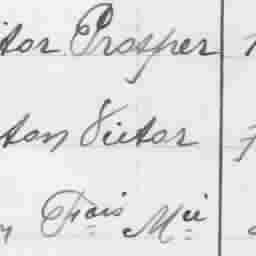 itor Prosper
ton Victor
Frois Mie